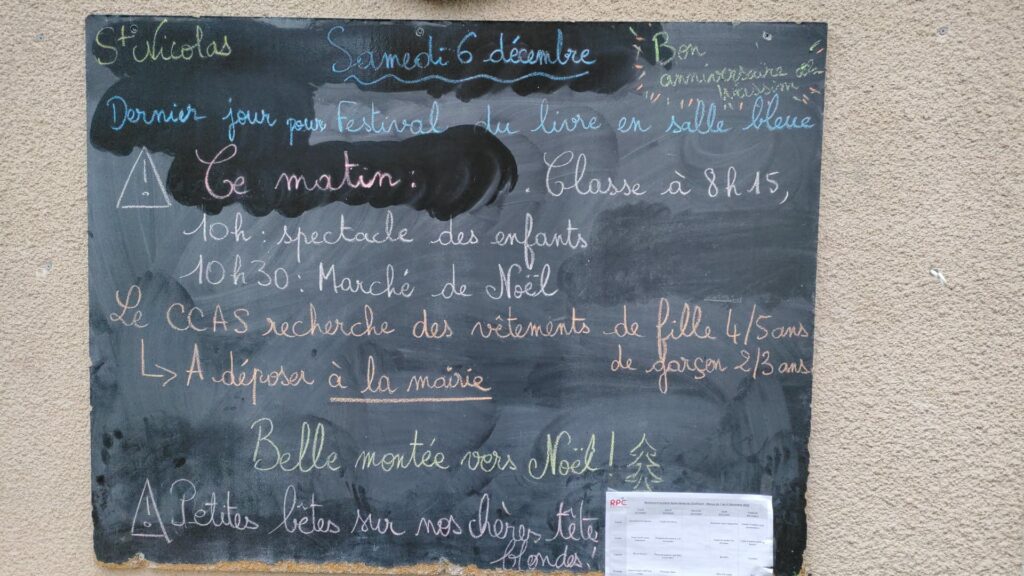 St Nicolas
Samedi 6 décembre
Bon
anniversaire
Wassim
Dernier jour pour Festival du livre en salle bleue
! Ce matin: . Classe à 8h15,
10h: spectacle des enfants
10h30: Marché de Noël
Le CCAS recherche des vêtements de fille 4/5 ans
de garçon 2/3 ans
↳ A déposer à la mairie
Belle montée vers Noël!
! Petites bêtes sur nos chères tête
blondes!
RPC